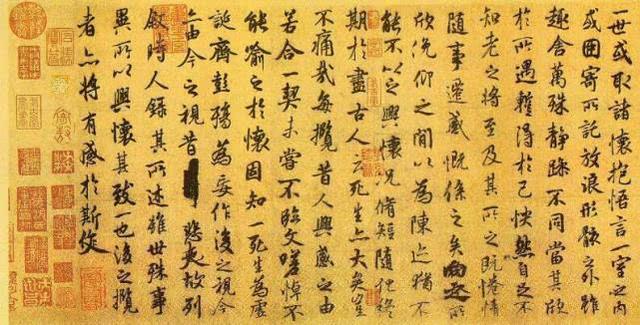 一世或取諸懷抱悟言一室之內
或因寄所託放浪形骸之外雖
趣舍萬殊靜躁不同當其欣
於所遇蹔得於己怏然自足不
知老之將至及其所之既惓情
隨事遷感慨係之矣向之所
欣俛仰之間以為陳迹猶不
能不以之興懷況脩短隨化終
期於盡古人云死生亦大矣豈
不痛哉每攬昔人興感之由
若合一契未嘗不臨文嗟悼不
能喻之於懷固知一死生為虛
誕齊彭殤為妄作後之視今
亦由今之視昔悲夫故列
敘時人錄其所述雖世殊事
異所以興懷其致一也後之攬
者亦將有感於斯文